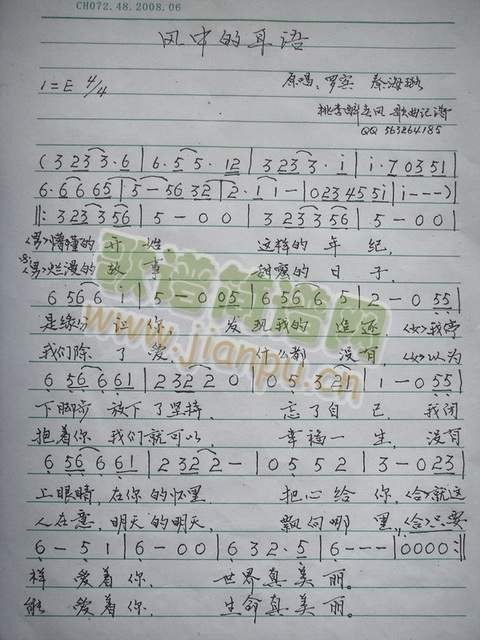 CH072.48.2008.06
风中的耳语
1=E 4/4
原唱：罗宾 秦海璐
歌曲记谱
QQ 563264185
(3 2 3 3·6 | 6·5 5·12 | 3 2 3 3·i | i·7 0 3 5 1 |
6·6 6 6 5 | 5 - 5 6 3 2 | 2·1 1 - | 0 2 3 4 5 5 i | i - - -)
‖: 3 2 3 3 5 6 | 5 - 0 0 | 3 2 3 3 5 6 | 5 - 0 0 |
<男>懵懂的 这样的 年 纪,
<男>烂漫的故事 甜蜜的 日 子,
6 5 6 6 i | 5 - 0 0 5 | 6 5 6 6 5 | 2 - 0 5 5 |
是缘分 让你 发 现我的 追逐 <女>我停
我们除 了 爱 什么都 没有, <女>以为
6 5 6 6 6 1 | 2 3 2 2 0 | 0 5 3 2 1 | 1 - 0 5 5 |
下脚步 放下了坚持, 忘了自 己, 我闭
抱着你 我们就可以, 幸福一 生, 没有
6 5 6 6 6 1 | 2 3 2 2 - | 0 5 5 2 | 3 - 0 2 3 |
上眼睛,在你的怀里 把心给 你,<合>就这
人在意,明天的明天, 飘向哪 里,<合>只要
6 - 5 1 | 6 - 0 0 | 6 3 2·5 | 6 - - - | 0 0 0 0 :‖
样 爱着你, 世界真美丽。
能 爱着你, 生命真美丽。
歌谱简谱网
www.jianpu.cn